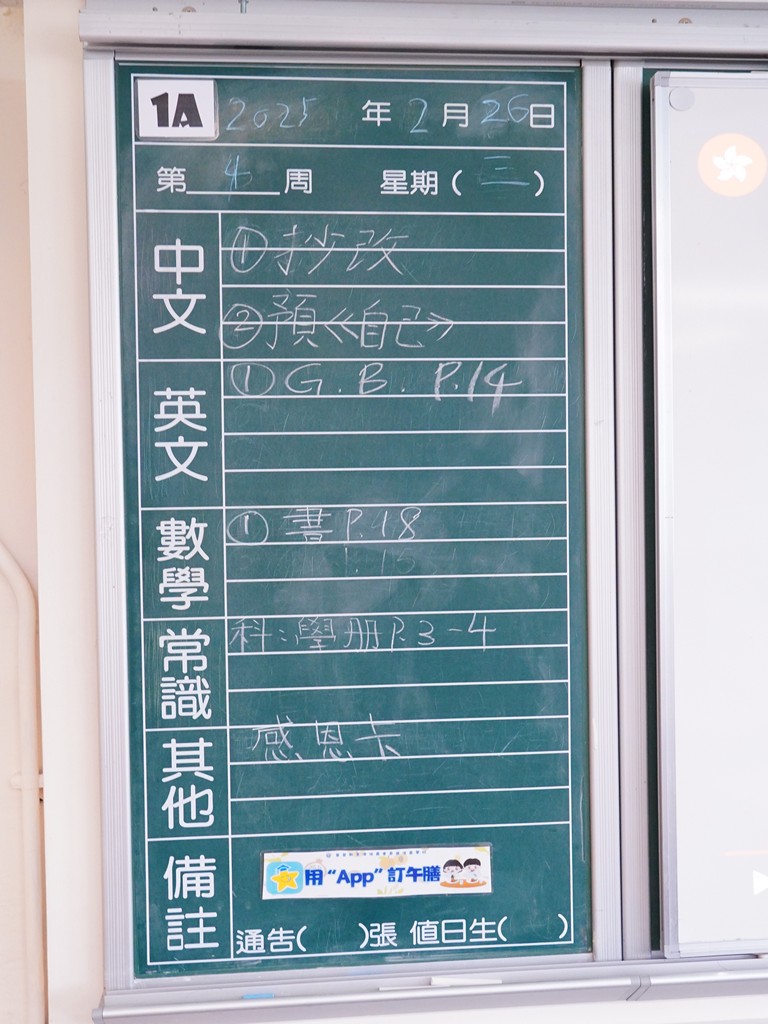 1A 2025年2月26日
第4周 星期(三)
中文 ①抄改
②預《自己》
英文 ①G.B. P.14
數學 ①書P.18
常識 科:學册P.3-4
其他 感恩卡
備註 用“App”訂午膳
通告( )張 值日生( )